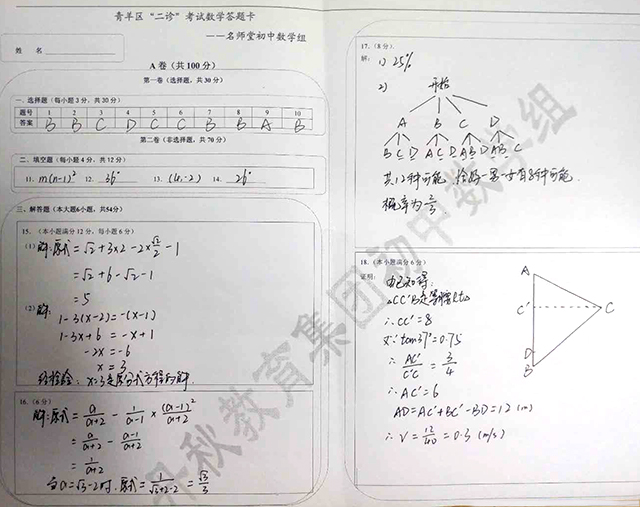 青羊区“二诊”考试数学答题卡
——名师堂初中数学组
姓 名
A 卷（共 100 分）
第一卷（选择题，共 30 分）
一、选择题（每小题 3 分，共 30 分）
题号 1 2 3 4 5 6 7 8 9 10
答案 B B C D C C B B A B
第二卷（非选择题，共 70 分）
二、填空题（每小题 4 分，共 12 分）
11. m(n-1)² 12. 36° 13. (4,-2) 14. 26°
三、解答题（本大题6小题，共54分）
15.（本小题满分 12 分，每小题 6 分）
(1) 解：原式=√2+3×2-2×√2/2-1
=√2+6-√2-1
=5
(2) 解：
1-3(x-2)=-(x-1)
1-3x+6=-x+1
-2x=-6
x=3
经检验：x=3是原分式方程的解.
16.（6 分）
解：原式=a/(a+2)-1/(a-1)×(a-1)²/(a+2)
=a/(a+2)-(a-1)/(a+2)
=1/(a+2)
当a=√3-2时，原式=1/(√3-2+2)=√3/3
17.（8 分）
解： 1) 25%
2) 开始
A B C D
B C D A C D A B D A B C
共12种可能，恰好一男一女有8种可能.
概率为2/3.
18.（本小题满分 6 分）
证明：
由已知得：
△CC'B是等腰Rt△
∴CC'=8
又∵tan37°=0.75
∴AC'/C'C=3/4
∴AC'=6
AD=AC'+BC'-BD=12 (m)
∴V=12/40=0.3 (m/s)
A
C' C
D
B
升秋教育集团初中数学组